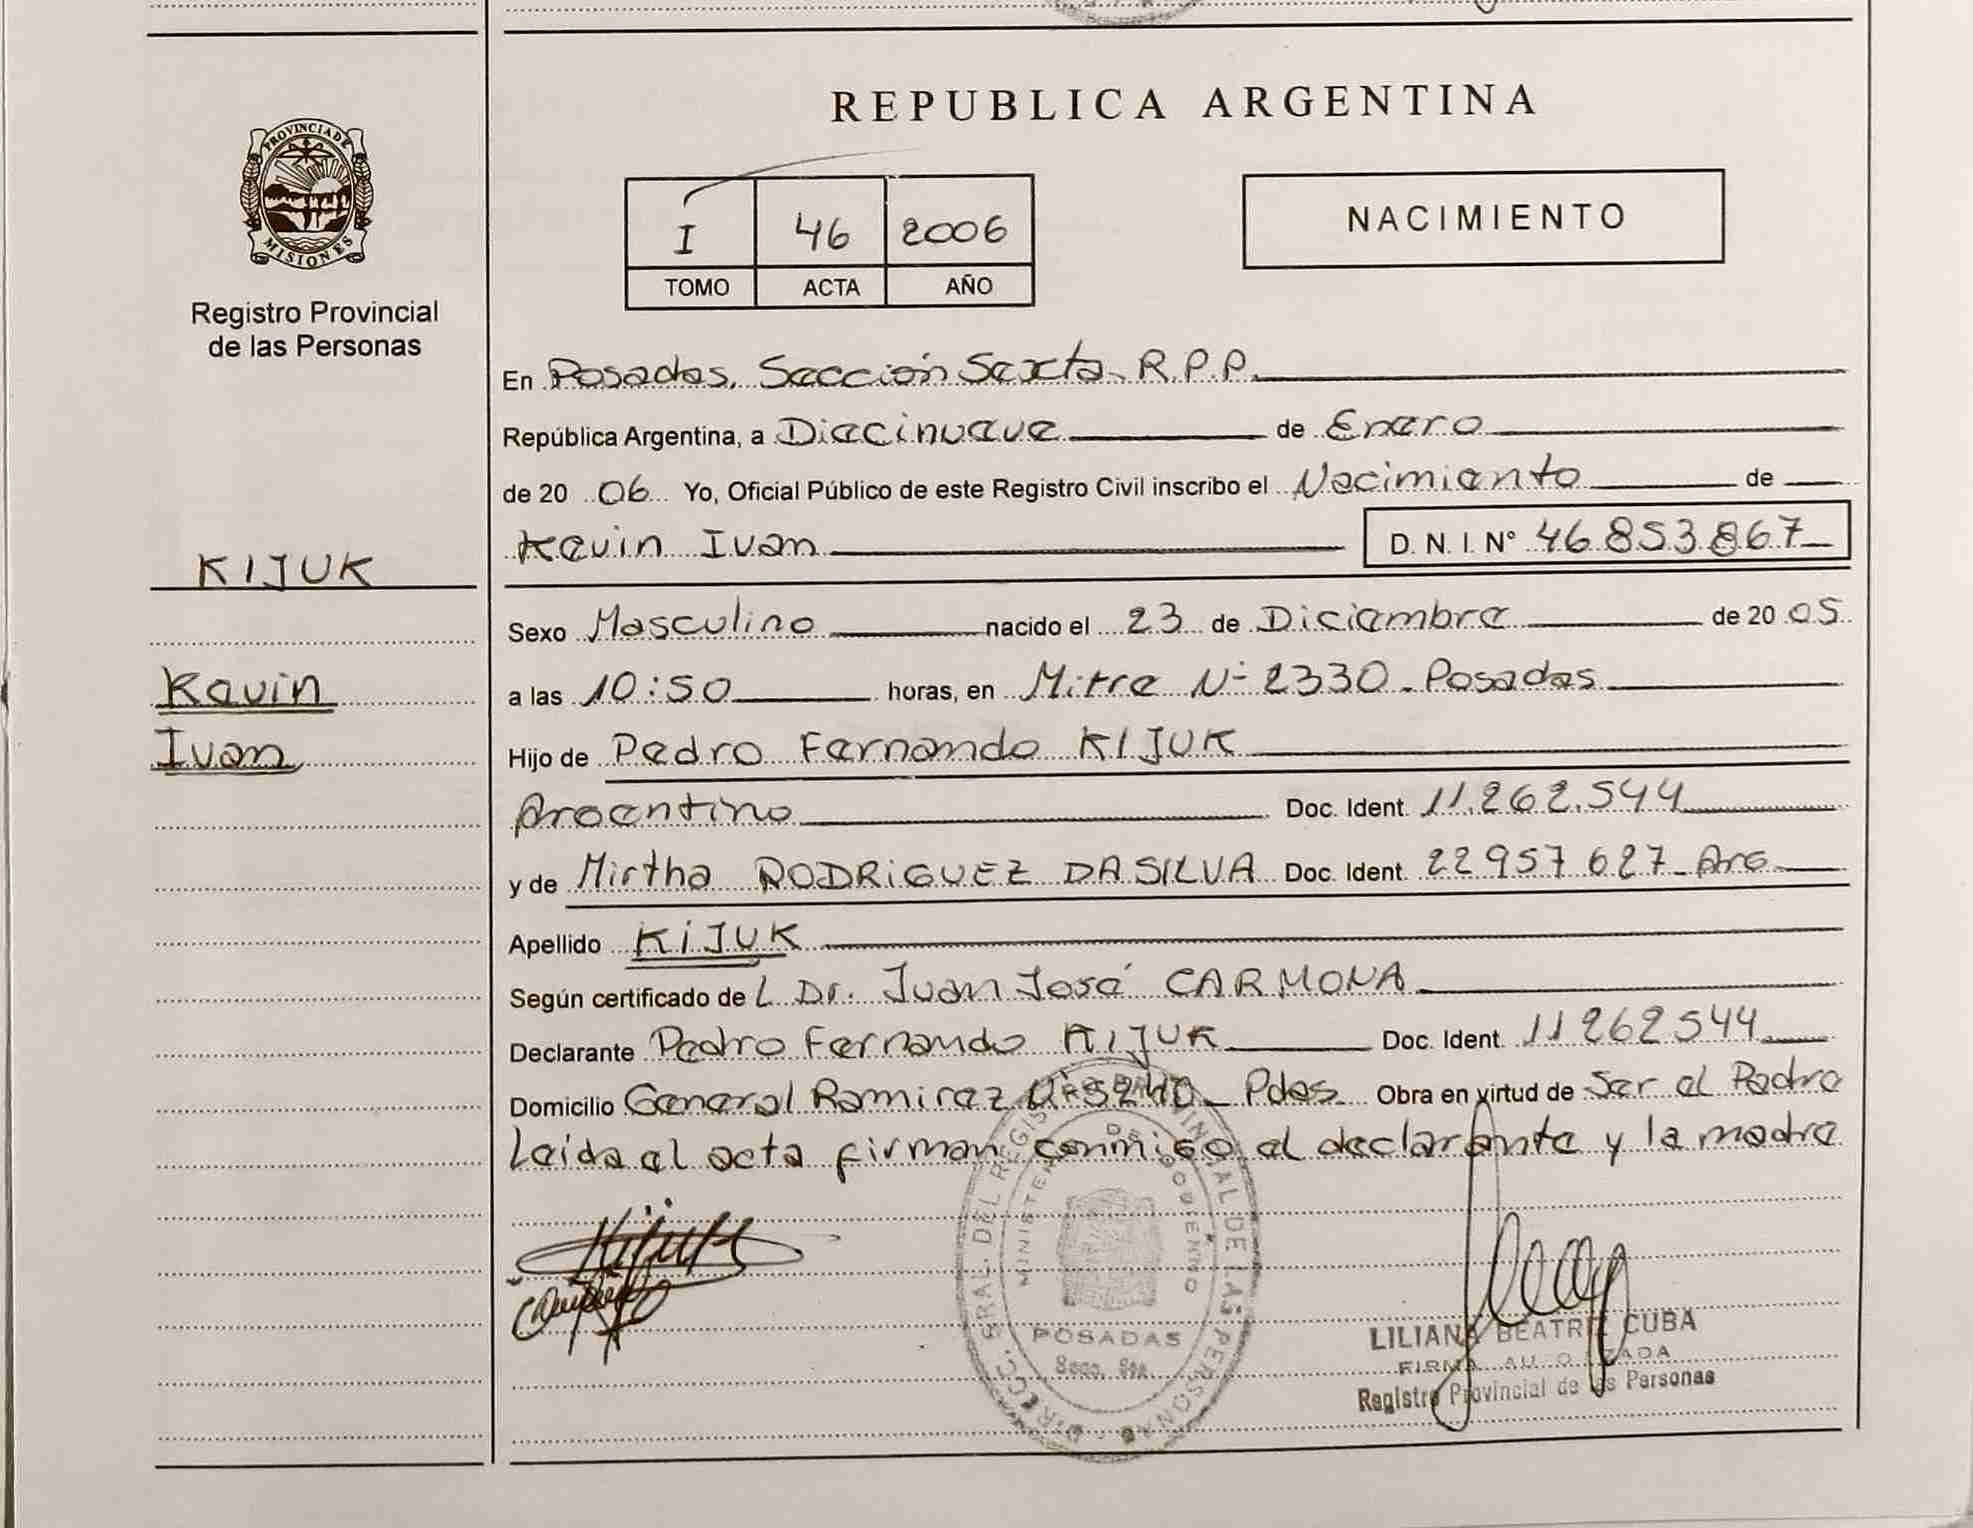 PROVINCIA DE
MISIONES
Registro Provincial
de las Personas
KIJUK
Kevin
Ivan
REPUBLICA ARGENTINA
I 46 2006
TOMO ACTA AÑO
NACIMIENTO
En Posadas, Sección Sexta, R.P.P.
República Argentina, a Diecinueve de Enero
de 20 06 Yo, Oficial Público de este Registro Civil inscribo el Nacimiento de
Kevin Ivan D. N. I. N° 46.853.867
Sexo Masculino nacido el 23 de Diciembre de 20 05
a las 10:50 horas, en Mitre Nº 2330 - Posadas
Hijo de Pedro Fernando KIJUK
Argentino Doc. Ident. 11.262.544
y de Mirtha RODRIGUEZ DA SILVA Doc. Ident. 22 957 627 - Arg
Apellido KIJUK
Según certificado de L Dr. Juan José CARMONA
Declarante Pedro Fernando KIJUK Doc. Ident. 11 262 544
Domicilio General Ramirez Nº 5240 - Pdas. Obra en virtud de Ser el Padre
Leída el acta firman conmigo el declarante y la madre
Kijuk
DIRECC. GRAL. DEL REGISTRO PROVINCIAL DE LAS PERSONAS
MINISTERIO DE GOBIERNO
POSADAS
Secc. 6ta.
LILIANA BEATRIZ CUBA
FIRMA AUTORIZADA
Registro Provincial de las Personas